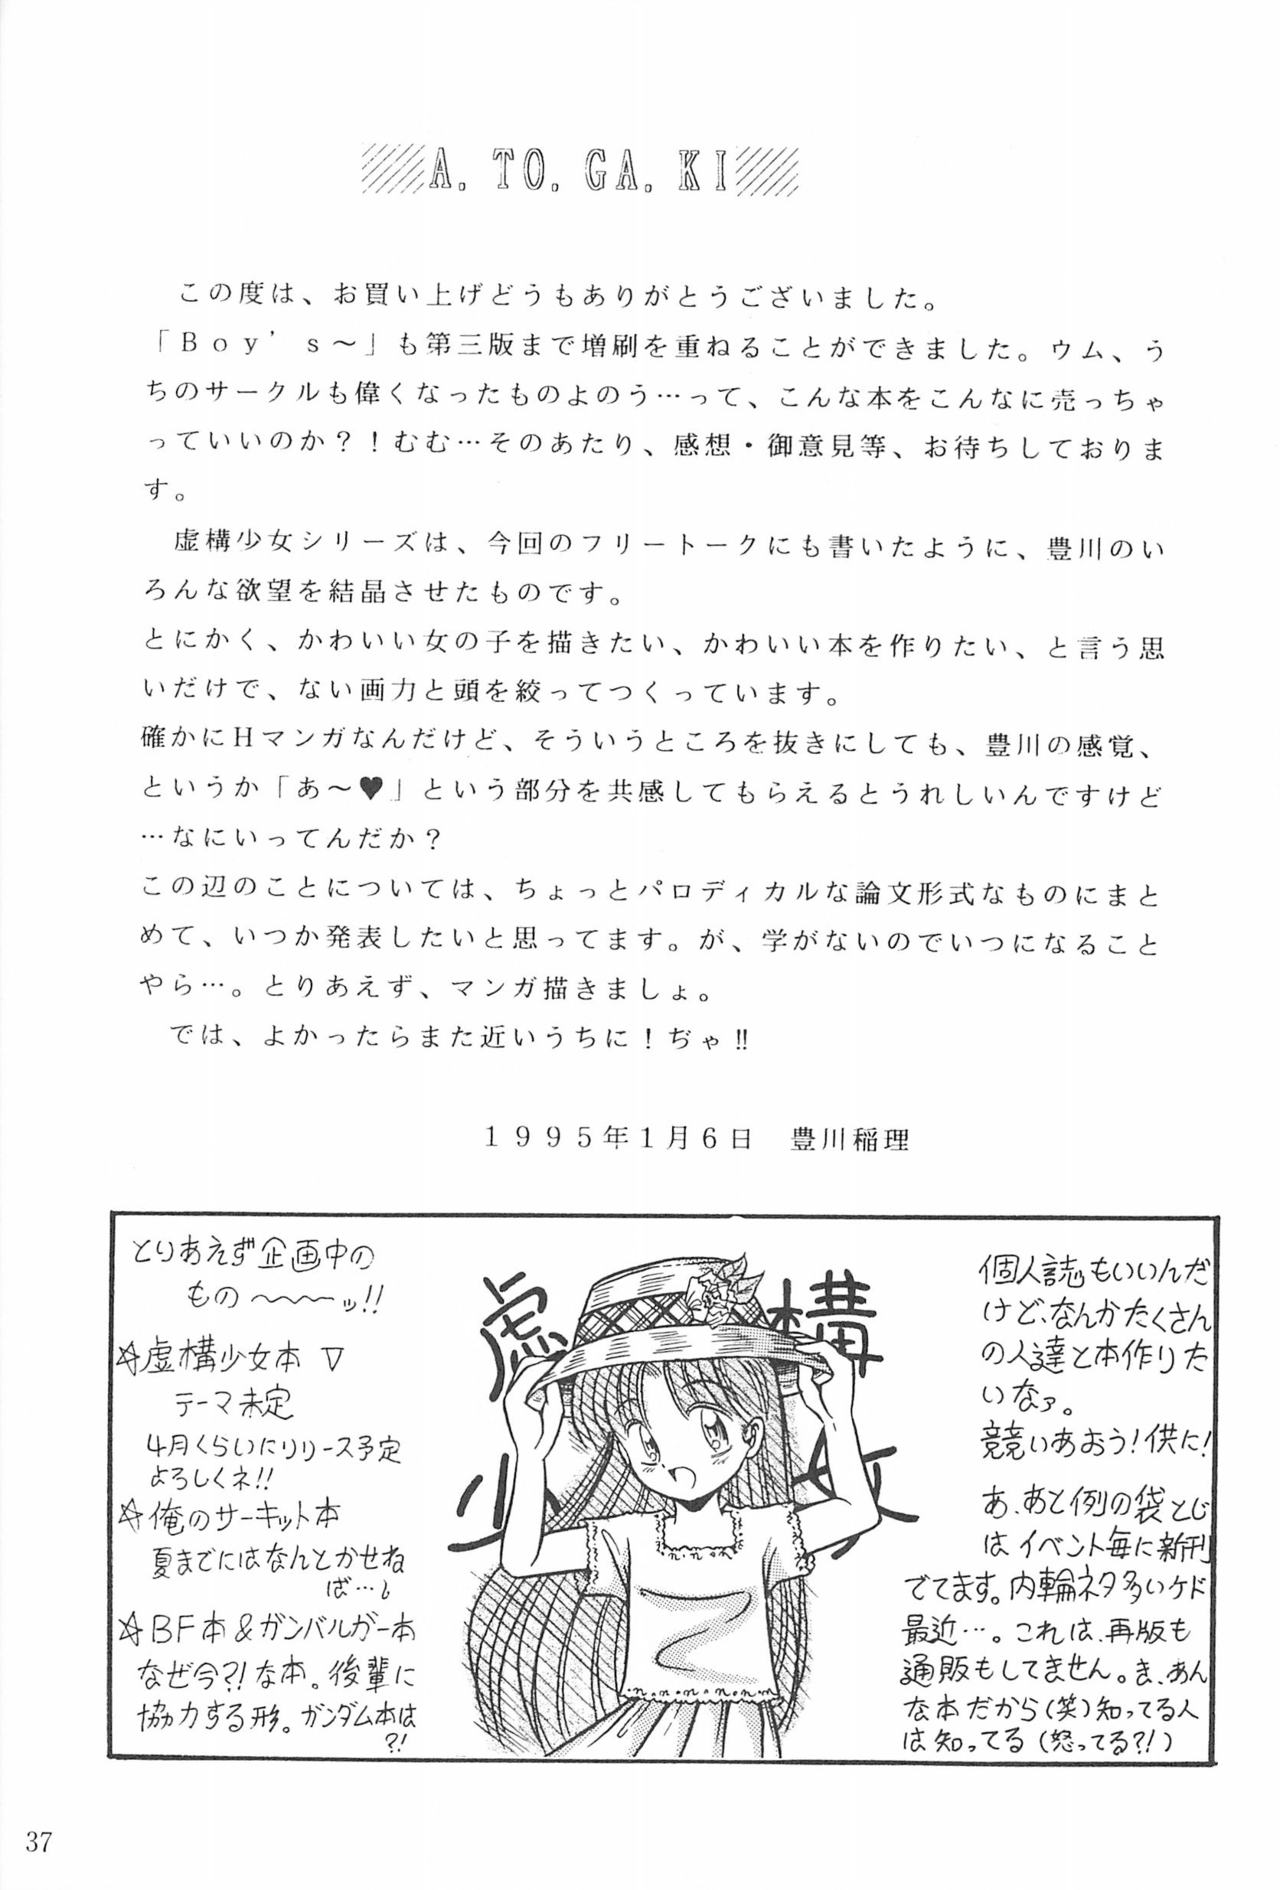 A. TO. GA. KI
この度は、お買い上げどうもありがとうございました。
「Boy’s～」も第三版まで増刷を重ねることができました。ウム、う
ちのサークルも偉くなったものよのう…って、こんな本をこんなに売っちゃ
っていいのか？！むむ…そのあたり、感想・御意見等、お待ちしておりま
す。
虚構少女シリーズは、今回のフリートークにも書いたように、豊川のい
ろんな欲望を結晶させたものです。
とにかく、かわいい女の子を描きたい、かわいい本を作りたい、と言う思
いだけで、ない画力と頭を絞ってつくっています。
確かにHマンガなんだけど、そういうところを抜きにしても、豊川の感覚、
というか「あ～♥」という部分を共感してもらえるとうれしいんですけど
…なにいってんだか？
この辺のことについては、ちょっとパロディカルな論文形式なものにまと
めて、いつか発表したいと思ってます。が、学がないのでいつになること
やら…。とりあえず、マンガ描きましょ。
では、よかったらまた近いうちに！ぢゃ‼
1995年1月6日　豊川稲理
とりあえず企画中の
もの～～～ッ!!
☆虚構少女本 ▽
テーマ未定
4月くらいにリリース予定
よろしくネ!!
☆俺のサーキット本
夏までにはなんとかせね
ば…。
☆BF本&ガンバルガー本
なぜ今?!な本。後輩に
協力する形。ガンダム本は
?!
虚構
少女
個人誌もいいんだ
けど、なんかたくさん
の人達と本作りた
いなァ。
競いあおう!供に!
あ、あと例の袋とじ
はイベント毎に新刊
でてます。内輪ネタ多いケド
最近…。これは、再版も
通販もしてません。ま、あん
な本だから(笑)知ってる人
は知ってる(怒ってる?!)
37